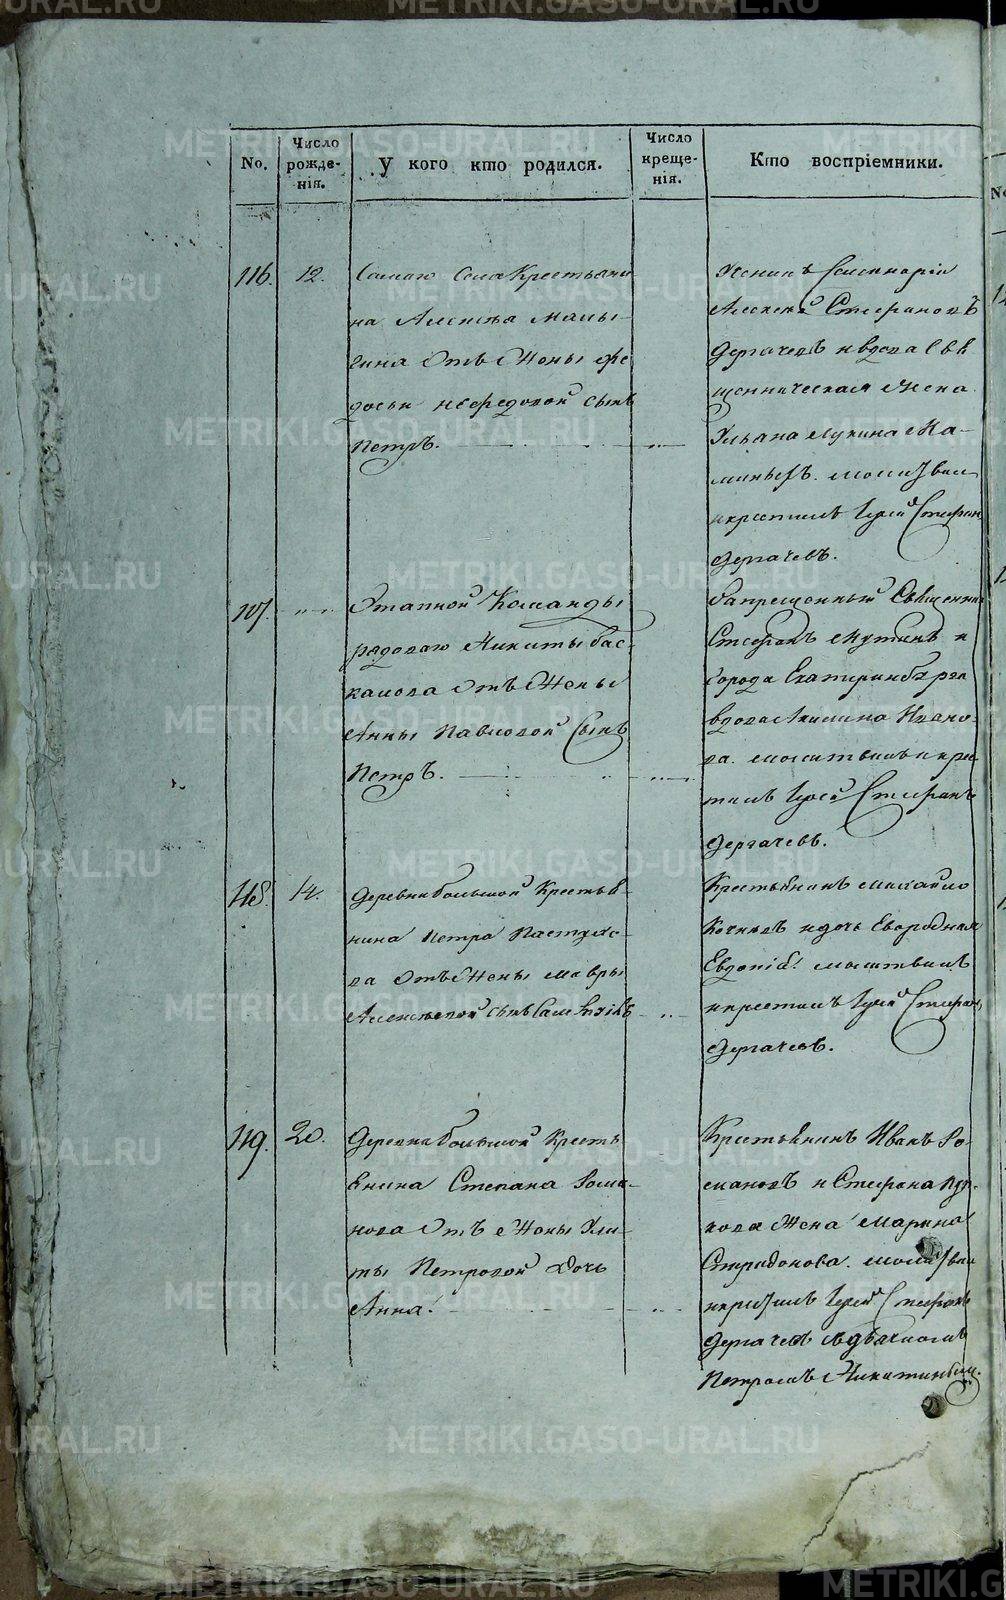 No.
Число рожденія.
У кого кто родился.
Число крещенія.
Кто воспріемники.
116.
12.
Самаго Села Крестьяни
на Алексѣя Малы-
гина Отъ Жены Фе
досьи Нефедовой сынъ
Петръ.
Ученикъ Семинаріи
Алексѣй Стефановъ
Дергачевъ и вдова Свя
щенническая жена
Ульяна Лукина Ма-
миныхъ. молитвил
и крестилъ Іерей Стефанъ
Дергачевъ.
117.
Этапной Команды
рядоваго Никиты Бас-
какова Отъ Жены
Анны Павловой Сынъ
Петръ.
Запрещенный Священник
Стефанъ Мутинъ и
города Екатеринбурга
вдова Акилина Ивано-
ва. молитвилъ и крес
тилъ Іерей Стефанъ
Дергачевъ.
118.
14.
Деревни большой Крестья
нина Петра Пастухо-
ва Отъ Жены Мавры
Алексѣевой сынъ
Крестьянинъ Михайло
Кочневъ и дочь Его родная
Евдокія! молитвилъ
и крестилъ Іерей Стефанъ
Дергачевъ.
119.
20.
Деревни большой Кресть
янина Степана Рома-
нова Отъ Жены Ули-
ты Петровой Дочь
Анна!
Крестьянинъ Иванъ Ро-
мановъ и Стефана
кова Жена Марина
Спиридонова. молитвил
и крестилъ Іерей Стефанъ
Дергачевъ съ дьячкомъ
Петромъ Никитинымъ.
METRIKI.GASO-URAL.RU